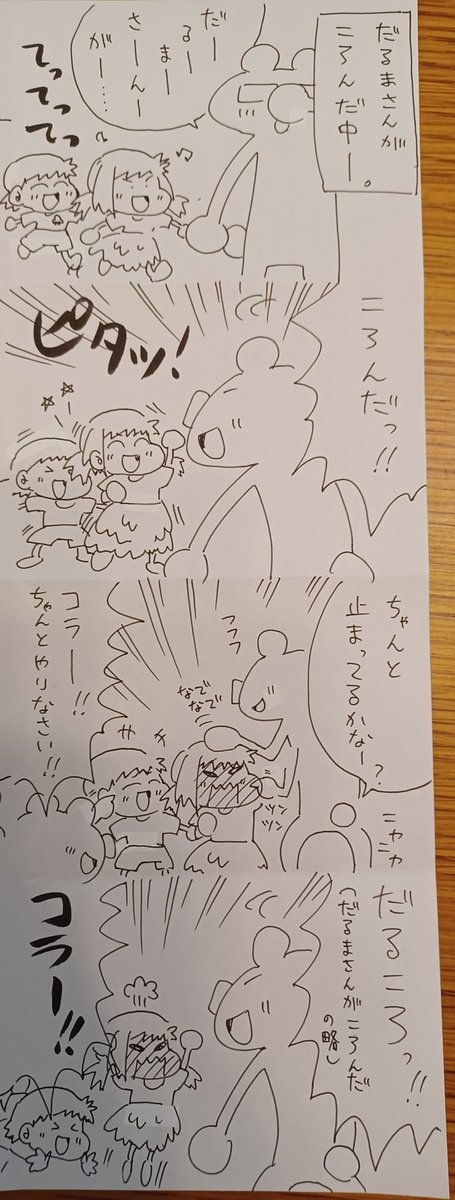 だるまさんが
ころんだ中ー。
だー
るー
まー
さーんー
がー……
てってってっ
ころんだっ!!
ピタッ!
ちゃんと
止まってるかなー?
ニヤニヤ
フフフ
なでなで
ツンツン
コラー!!
ちゃんとやりなさい!!
だるころっ!!
(だるまさんがころんだ
の略)
コラー!!